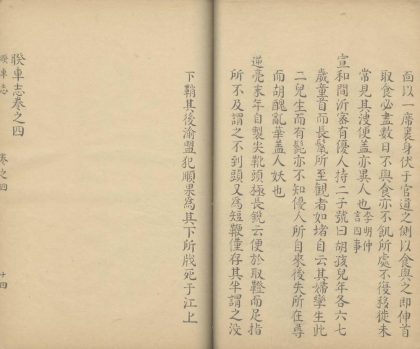 面以一席裹身伏于官道之側以食與之即伸首
取食必盡數日不與食亦不飢所處不復移徙未
常見其溲便蓋亦異人也李明仲言四事
宣和間沂密有優人持二子號曰胡孩兒年各六七
歲童首而長髯所至觀者如堵自云其婦孿生此
二兒生而有髭亦不知優人所自來後失所在尋
而胡醜亂華蓋人妖也
逆亮末年自製尖靴頭極長銳云便於取鞾而足指
所不及謂之不到頭又為短鞭僅存其半謂之沒
下鞘其後渝盟犯順果為其下所戕死于江上
睽車志卷之四
睽車志
卷之四
十四